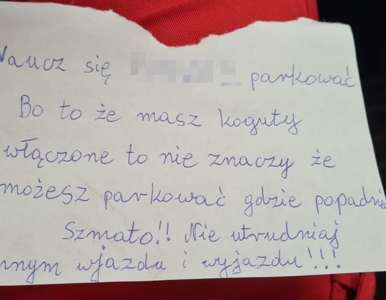 Naucz się parkować
Bo to że masz koguty
włączone to nie znaczy że
możesz parkować gdzie popadnie
Szmato!! Nie utrudniaj
innym wjazdu i wyjazdu!!!